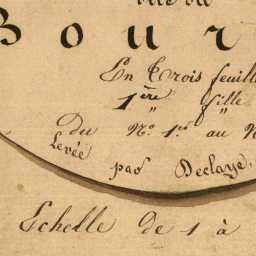 Bour
En Trois feuill
1ère feuille
du N.º 1er au N
Levée
par Declaye,
Echelle de 1 à